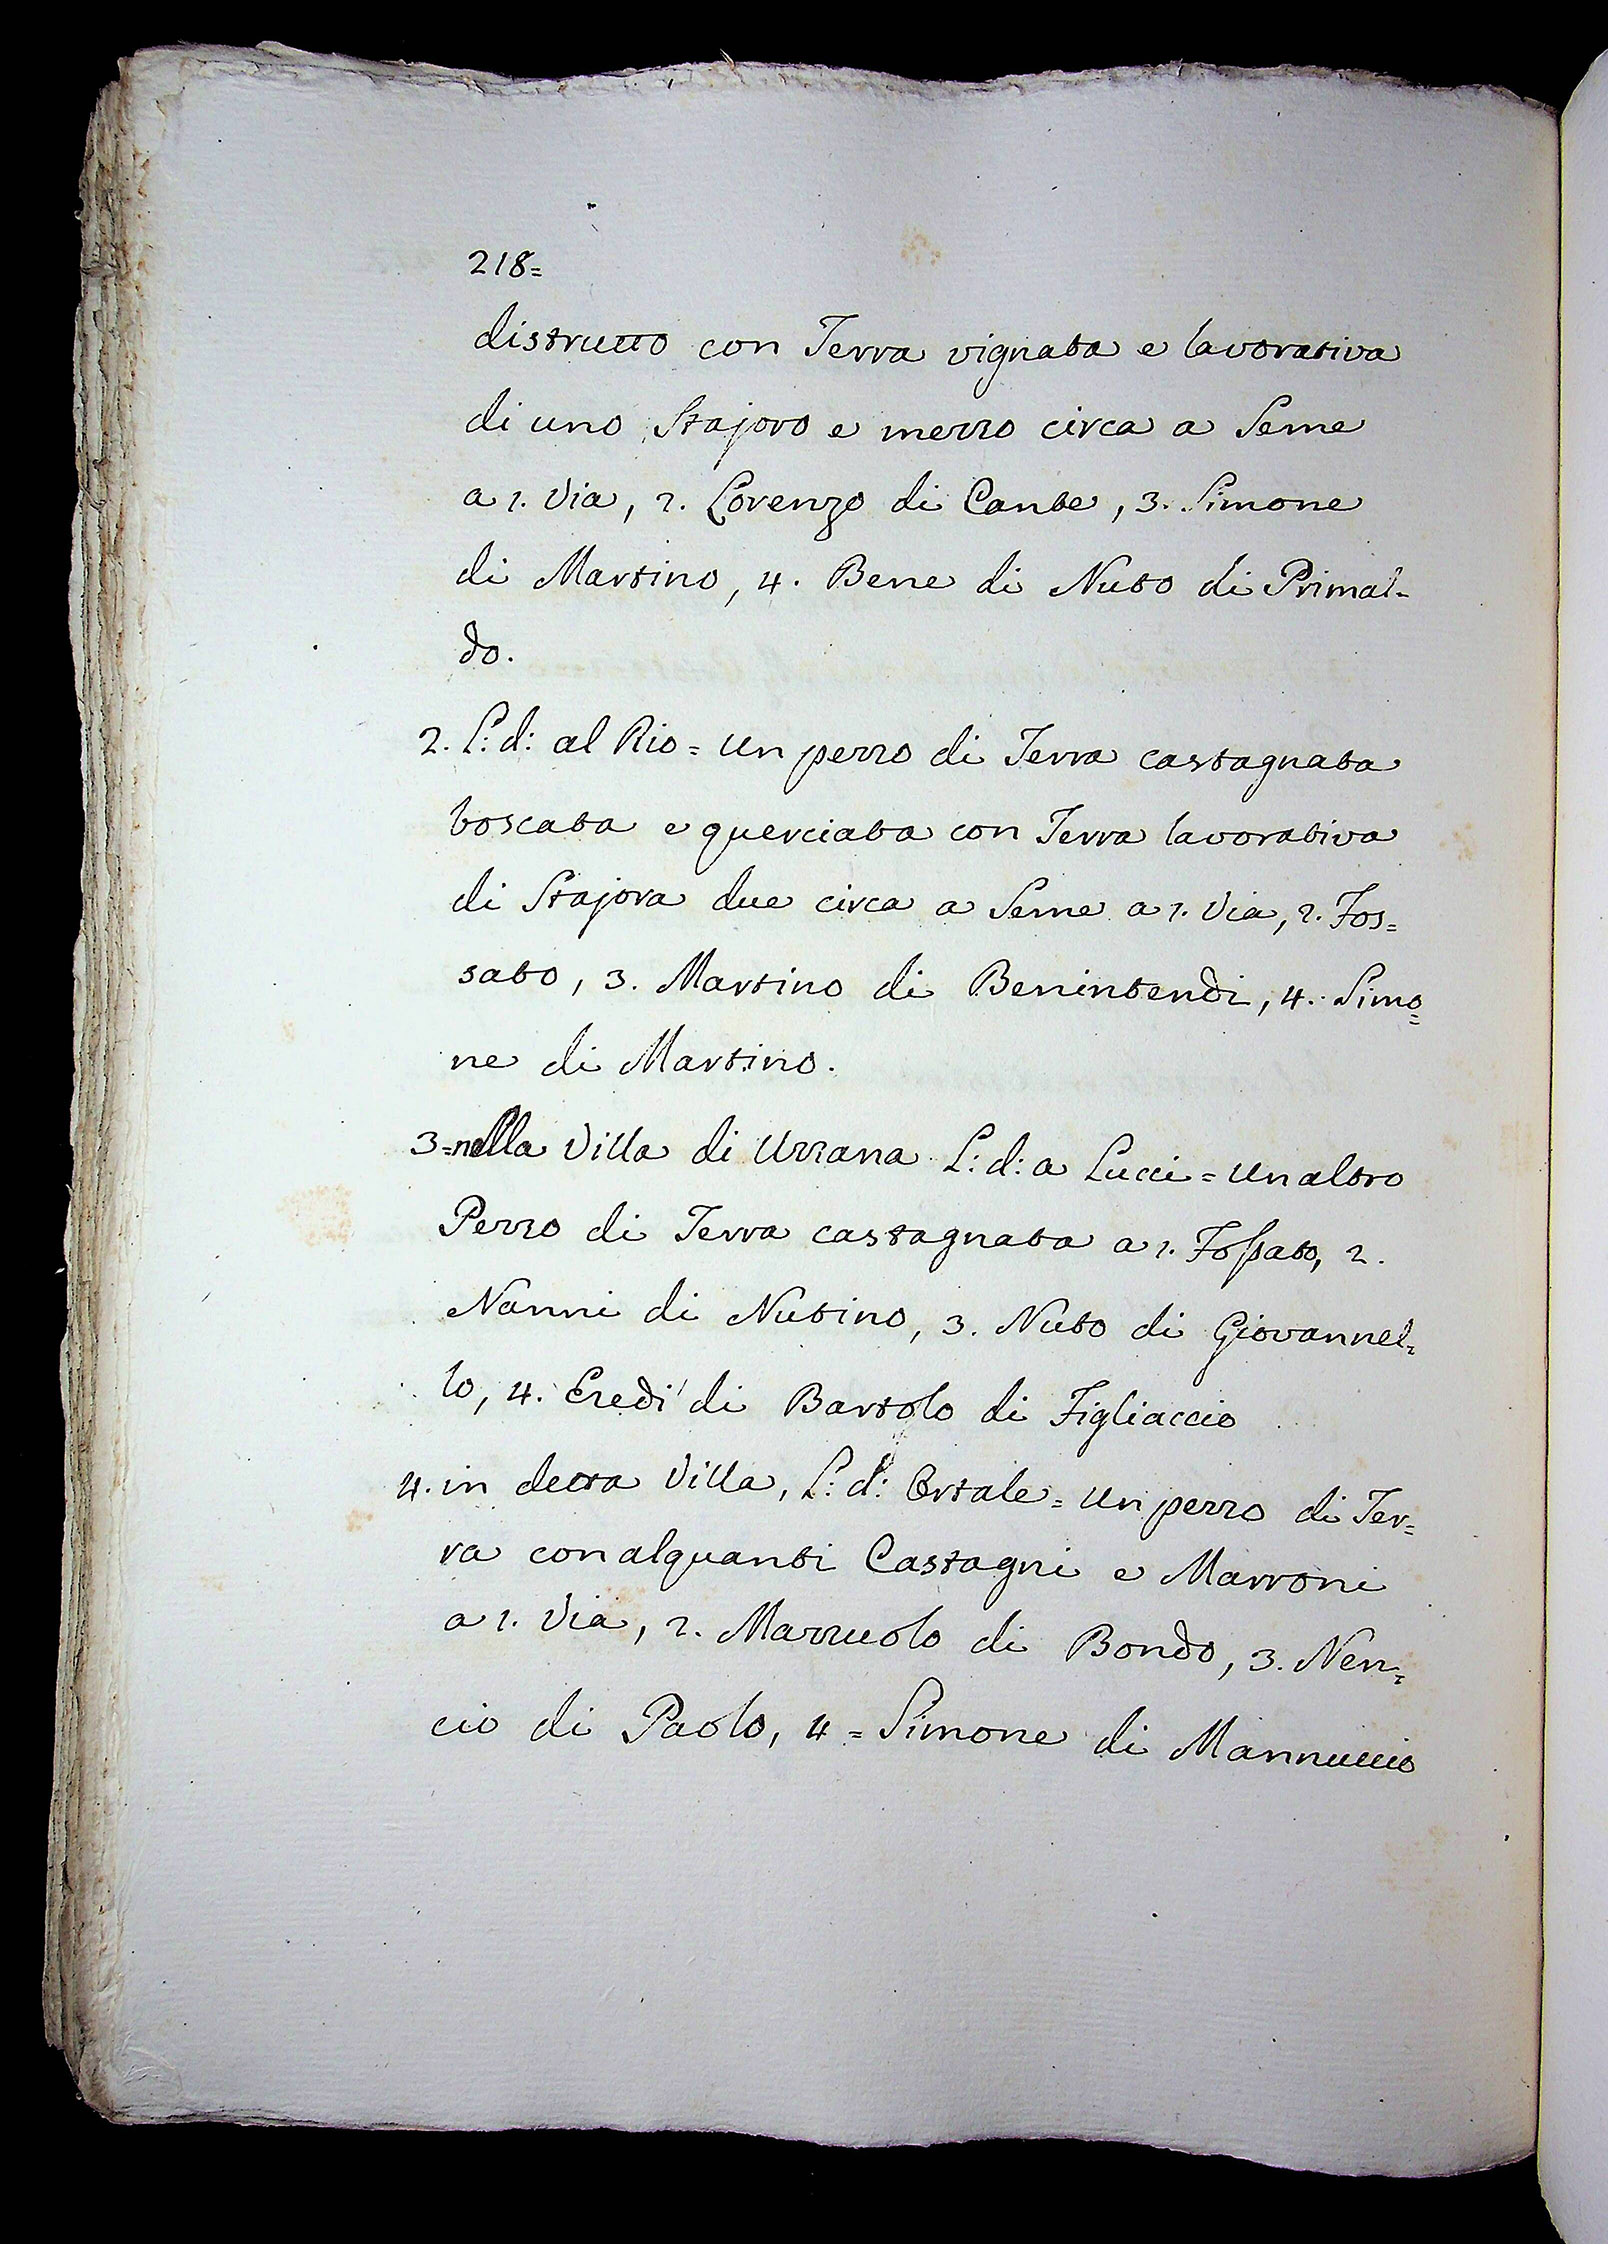 218=
distrutto con Terra vignata e lavorativa
di uno Stajoro e mezzo circa a Seme
a 1. Via, 2. Lorenzo di Cante, 3. Simone
di Martino, 4. Bene di Nuto di Primal-
do.
2. L: d: al Rio = un pezzo di Terra castagnata
boscata e querciata con Terra lavorativa
di Stajora due circa a Seme a 1. Via, 2. Fos=
sato, 3. Martino di Benintendi, 4. Simo=
ne di Martino.
3=nella Villa di Uzzana L: d: a Lucci = un altro
Pezzo di Terra castagnata a 1. Fossato, 2.
Nanni di Nutino, 3. Nuto di Giovannel=
lo, 4. Eredi di Bartolo di Figliaccio
4. in detta Villa, L: d: Ortale = un pezzo di Ter=
ra con alquanti Castagni e Marroni
a 1. Via, 2. Mazzuolo di Bondo, 3. Nen=
cio di Paolo, 4 = Simone di Mannuccio